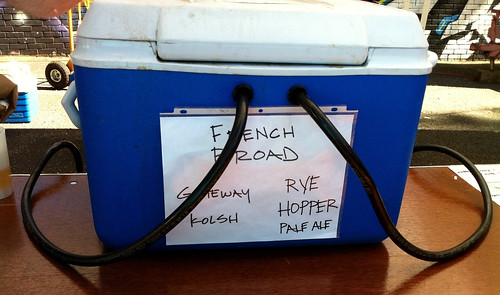 FRENCH
BROAD
GATEWAY
KOLSH
RYE
HOPPER
PALE ALE